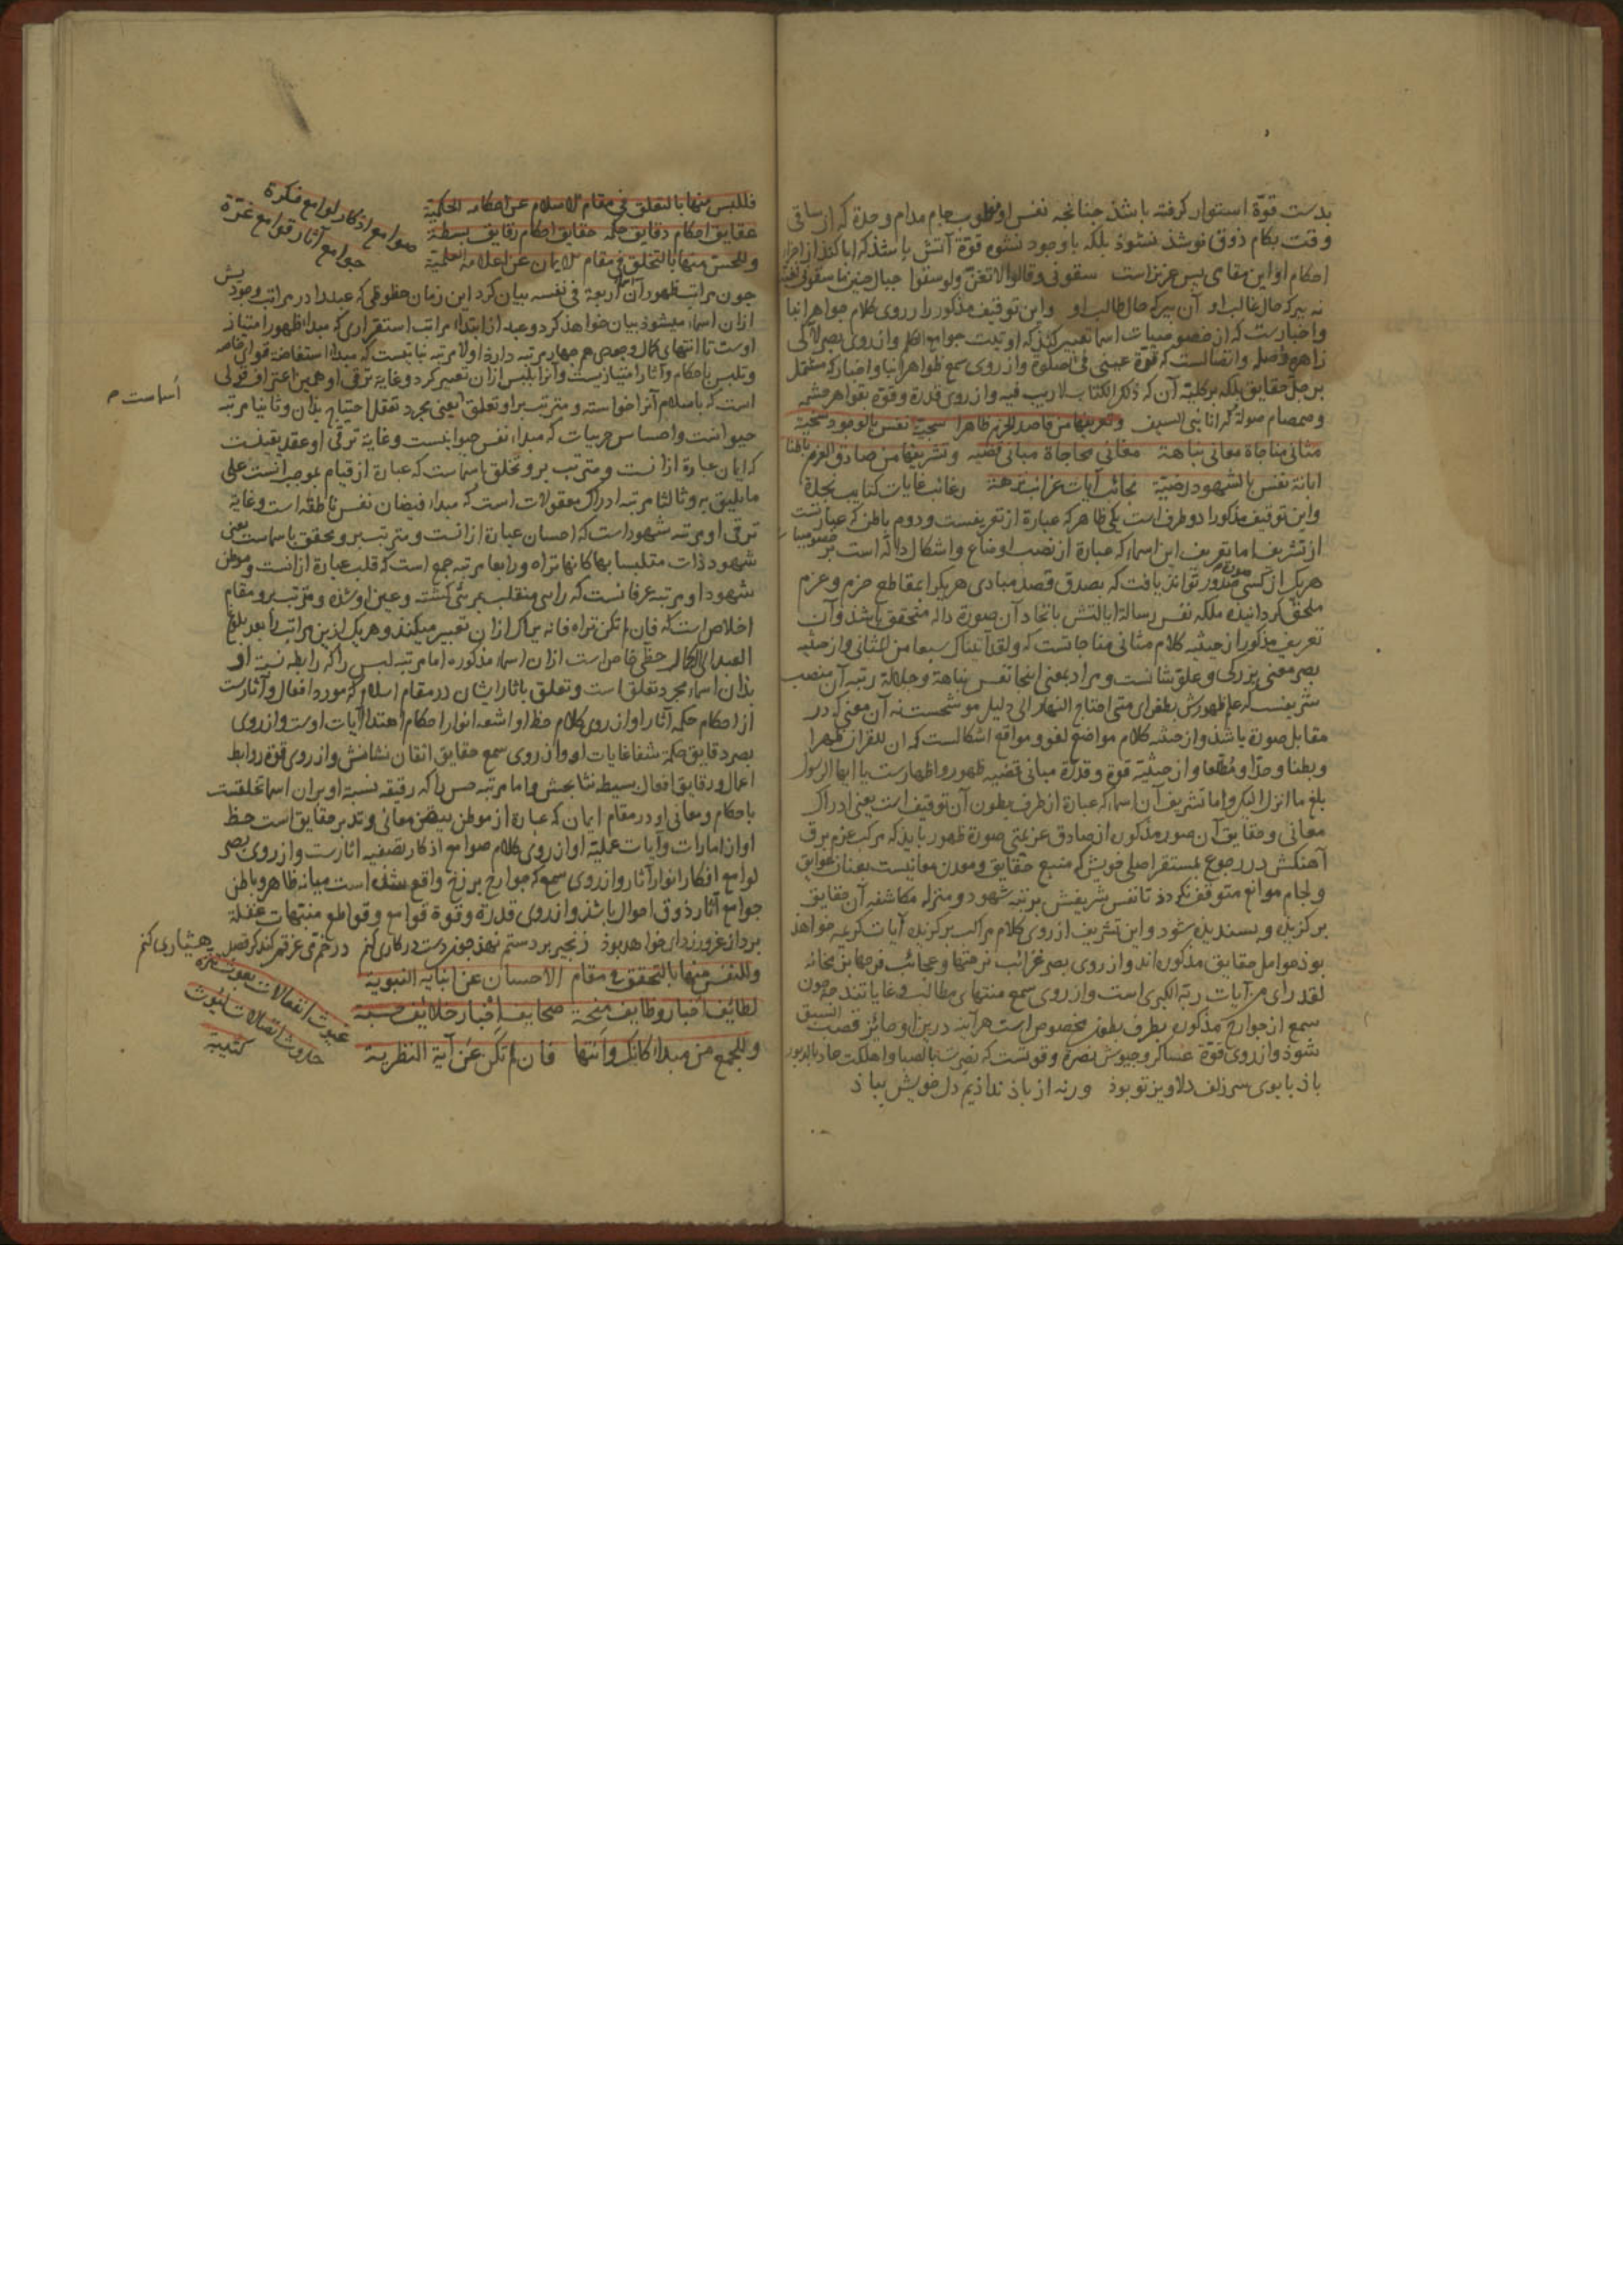 بدست قوّة استوار کرفته باشذ جنانجه نفس او مغلوب جام مدام وحدة که از ساقی
وقت بکام ذوق نوشذ نشوذ بلکه باوجود نشوه قوّة آتش باشذ که ابا کند از اجراء
احکام او این مقامی بس عزیزست سقونی وقالوا لا تغنّ ولو سقوا جبال حنین ما سقونی لغنّت
نه بیر که حال غالب او آن بیر که حال طالب او واین توقیف مذکور را از روی کلام جواهر انبا
واخبارست که از خصوصیات اسما تعبیر کند که اوتیت جوامع الکلم واز روی بصر لآلی
زاهره وصل واتصالست که قرّة عینی فی الصلوة واز روی سمع ظواهر انبا واخبار که مشتمل
بر جلّ حقایق بلکه بر کلیّة آن که ذلک الکتاب لا ریب فیه واز روی قدرة وقوّة بقواهر حشمه
وصمصام صولة که انا نبی السیف وتعریفها من قاصد الحزم ظاهرا سجیّة نفس بالوجود سخیّة
مثانی مناجاة معانی نباهة مغانی محاجاة مبانی قضیه وتشریفها من صادق العزم باطنا
انابة نفس بالشهود رضیّة نجائب آیات غرائب نزهة رغائب غایات کتایب نجدة
واین توقیف مذکور را دو طرف است یکی ظاهر که عبارة از تعریفست ودوم باطن که عبارتست
از تشریف اما تعریف این اسما که عبارة از نصب اوضاع واشکال دالّه است بر خصوصیات
هریک از کسی صورة صدور تواند یافت که بصدق قصد مبادی هریک را بمقاطع حزم وعزم
ملحق کردانیذه ملکه نفس رساله ابالتش باتحاد آن صورة داله متحقق باشذ وآن
تعریف مذکور از حیثیه کلام مثانی مناجاتست که ولقد آتیناک سبعا من المثانی واز حیثیه
بصر معنی بزرکی وعلوّ شانست ومراد بمعنی اینجا نفس نباهة وجلالة رتبه آن منصب
شریفست که علم ظهورش بطغرای متی احتاج النهار الی دلیل موشحست نه آن معنی که در
مقابل صورة باشذ واز حیثیه کلام مواضع لغو ومواقع اشکالست که ان للقران ظهرا
وبطنا وحدّا ومطّلعا واز حیثیّه قوة وقدرة مبانی قضیه ظهور واظهارست یا ایها الرسول
بلغ ما انزل الیک واما تشریف آن اسما که عبارة از طرف بطون آن توقیف است یعنی ادراک
معانی وحقایق آن صور مذکوره از صادق عزیمتی صورة ظهور یابذ که مرکب عزم برق
آهنکش در رجوع بمستقر اصلی خویش که منبع حقایق ومعدن معانیست بعنان عوایق
ولجام موانع متوقف نکردذ تا نفس شریفش برتبه شهود ومنزله مکاشفه آن حقایق
برکزیده وبسندیده شود واین تشریف از روی کلام مراکب برکزیده آیات کریمه خواهذ
بوذ حوامل حقایق مذکوره اند واز روی بصر غرائب نزهتها وعجائب فرجها
لقد رای من آیات ربه الکبری است واز روی سمع منتهای مطالب وغایاتند
سمع از جوارح مذکوره بطرف بطون مخصوص است هر آینه درین او حائز قصب السبق
شوذ واز روی قوّة عساکر وجیوش نصرة وقوتست که نصرت بالصبا واهلکت عاد بالدبور
باذ با بوی سر زلف دلاویز تو بوذ ورنه از باذ نداذیم دل خویش بباذ
فللبس منها بالتعلق فی مقام الاسلام عن احکامه الحکمیة
عقایق احکام دقایق حکمة حقایق احکام رقایق بسطة
وللحس منها بالتخلق فی مقام الایمان عن اعلامه العلمیة
صوامع اذکار لوامع فکرة
جوامع آثار قوامع غرّة
جون مراتب ظهور آن اسما اربعة فی نفسه بیان کرد این زمان حظوظی که عبد را در مراتب وجودیش
ازان اسماء میشوذ بیان خواهذ کرد وعبد از ابتداء مراتب استقراری که مبدا ظهور امتیاز
اوست تا انتهای کمال وجودی هم جهار مرتبه دارذ اولا مرتبه نباتیست که مبدا استفاضه قوای خاصه
وتلبس باحکام وآثار امتیازیست وآنرا بلبس ازان تعبیر کرد وغایة ترقی او همین اعتراف قولی
است که باسلام آنرا خواسته ومترتب بر او تعلق یعنی مجرد تعقل احتیاج بذان وثانیا مرتبه
اسماست م
حیوانیست واحساس جزییات که مبداء نفس حیوانیست وغایة ترقی او عقد یقینیست
که ایمان عبارة ازانست ومترتب برو تخلق باسماست که عبارة از قیام بموجبانست علی
ما یلیق به وثالثا مرتبه ادراک معقولات است که مبداء فیضان نفس ناطقه است وغایة
ترقی او مرتبه شهود است که احسان عبارة ازانست ومترتب برو تحقق باسماست یعنی
شهود ذات متلبسا بها کانها تراه ورابعا مرتبه جمع است که قلب عبارة ازانست وموطن
شهود او مرتبه عرفانست که رائی منقلب بمرئی کشته وعین او شذه ومترتب برو مقام
اخلاص است که فان لم تکن تراه فانه یراک ازان تعبیر میکنند وهریک ازین مراتب را بعد بلوغ
العبد الی الکمال حظی خاص است ازان اسماء مذکوره اما مرتبه لبس را که رابطه نسبة او
بذان اسماء مجرد تعلق است وتعلق باثار ایشان در مقام اسلام که مورد افعال وآثارست
از احکام حکمه آثار او از روی کلام حظ او اشعه انوار احکام اهتداء آیات اوست واز روی
بصر دقایق حکمة شفا غایات او واز روی سمع حقایق اتقان نشانش واز روی قوة روابط
اعمال ورقایق افعال بسیطه نشا بحش واما مرتبه حس را که رقیقه نسبة او بران اسما تخلقست
باحکام ومعانی او در مقام ایمان که عبارة از موطن تیقن معانی وتدبر حقایق است حظ
او از امارات وآیات علمیّه او از روی کلام صوامع اذکار تصفیه اثارست واز روی بصر
لوامع افکار انوار آثار واز روی سمع که جوارح برزخ واقع شذه است میانه ظاهر وباطن
جوامع آثار ذوق احوال باشذ واز روی قدرة وقوة قوامع وقواطع منتبهات غفلة
برداز غرور زدای خواهد بوذ زنجیر بر دستم نهذ جون دست در کاری کنم در خم می غرقم کند کر قصد هشیاری کنم
وللنفس منها بالتحقق فی مقام الاحسان عن انبایه النبویة
لطائف اخبار وظایف منحة صحایف احبار خلائف حسبة
وللجمع من مبدا کانک وانتها فان لم تکن عن آیة النظریة
غیوث انفعالات بعوث تنزّه
حدوث اتصالات لیوث کتیبة